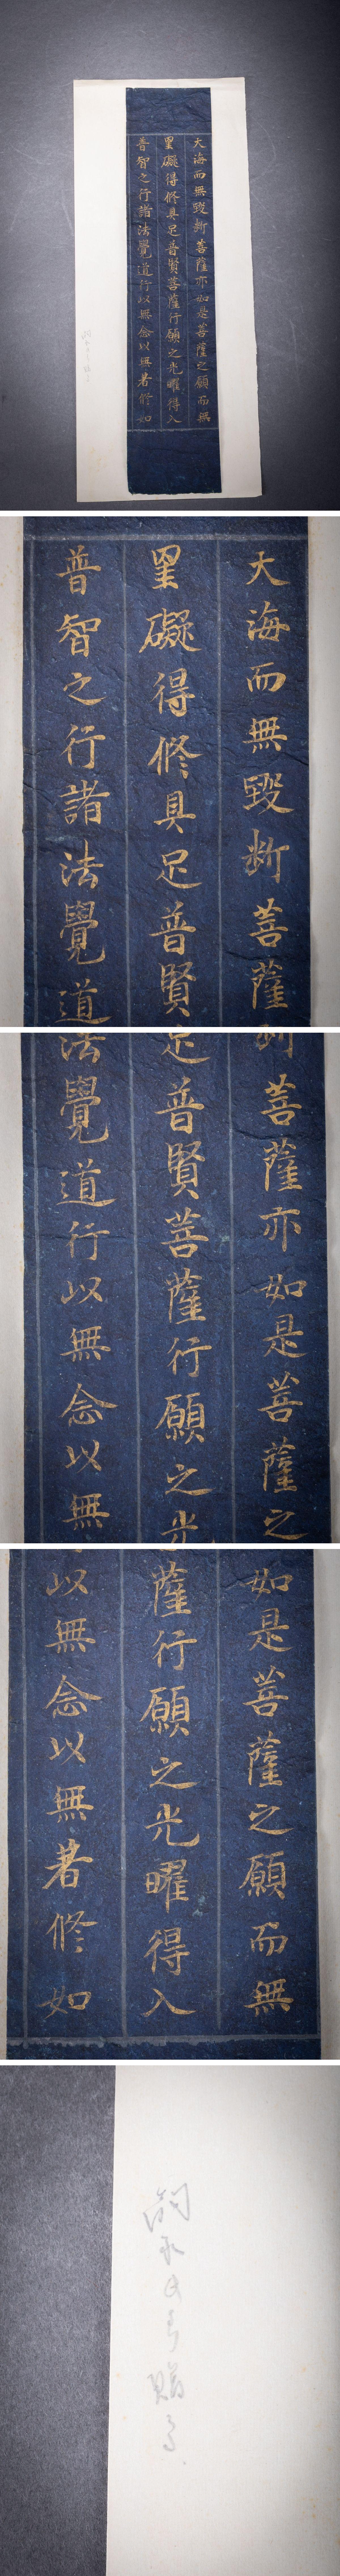 大海而無毀斷菩薩亦如是菩薩之願而無
罣礙得修具足普賢菩薩行願之光曜得入
普智之行諸法覺道行以無念以無著修如
大海而無毀斷菩薩
罣礙得修具足普賢
普智之行諸法覺道
菩薩亦如是菩薩之
足普賢菩薩行願之光
法覺道行以無念以無
如是菩薩之願而無
薩行願之光曜得入
以無念以無著修如